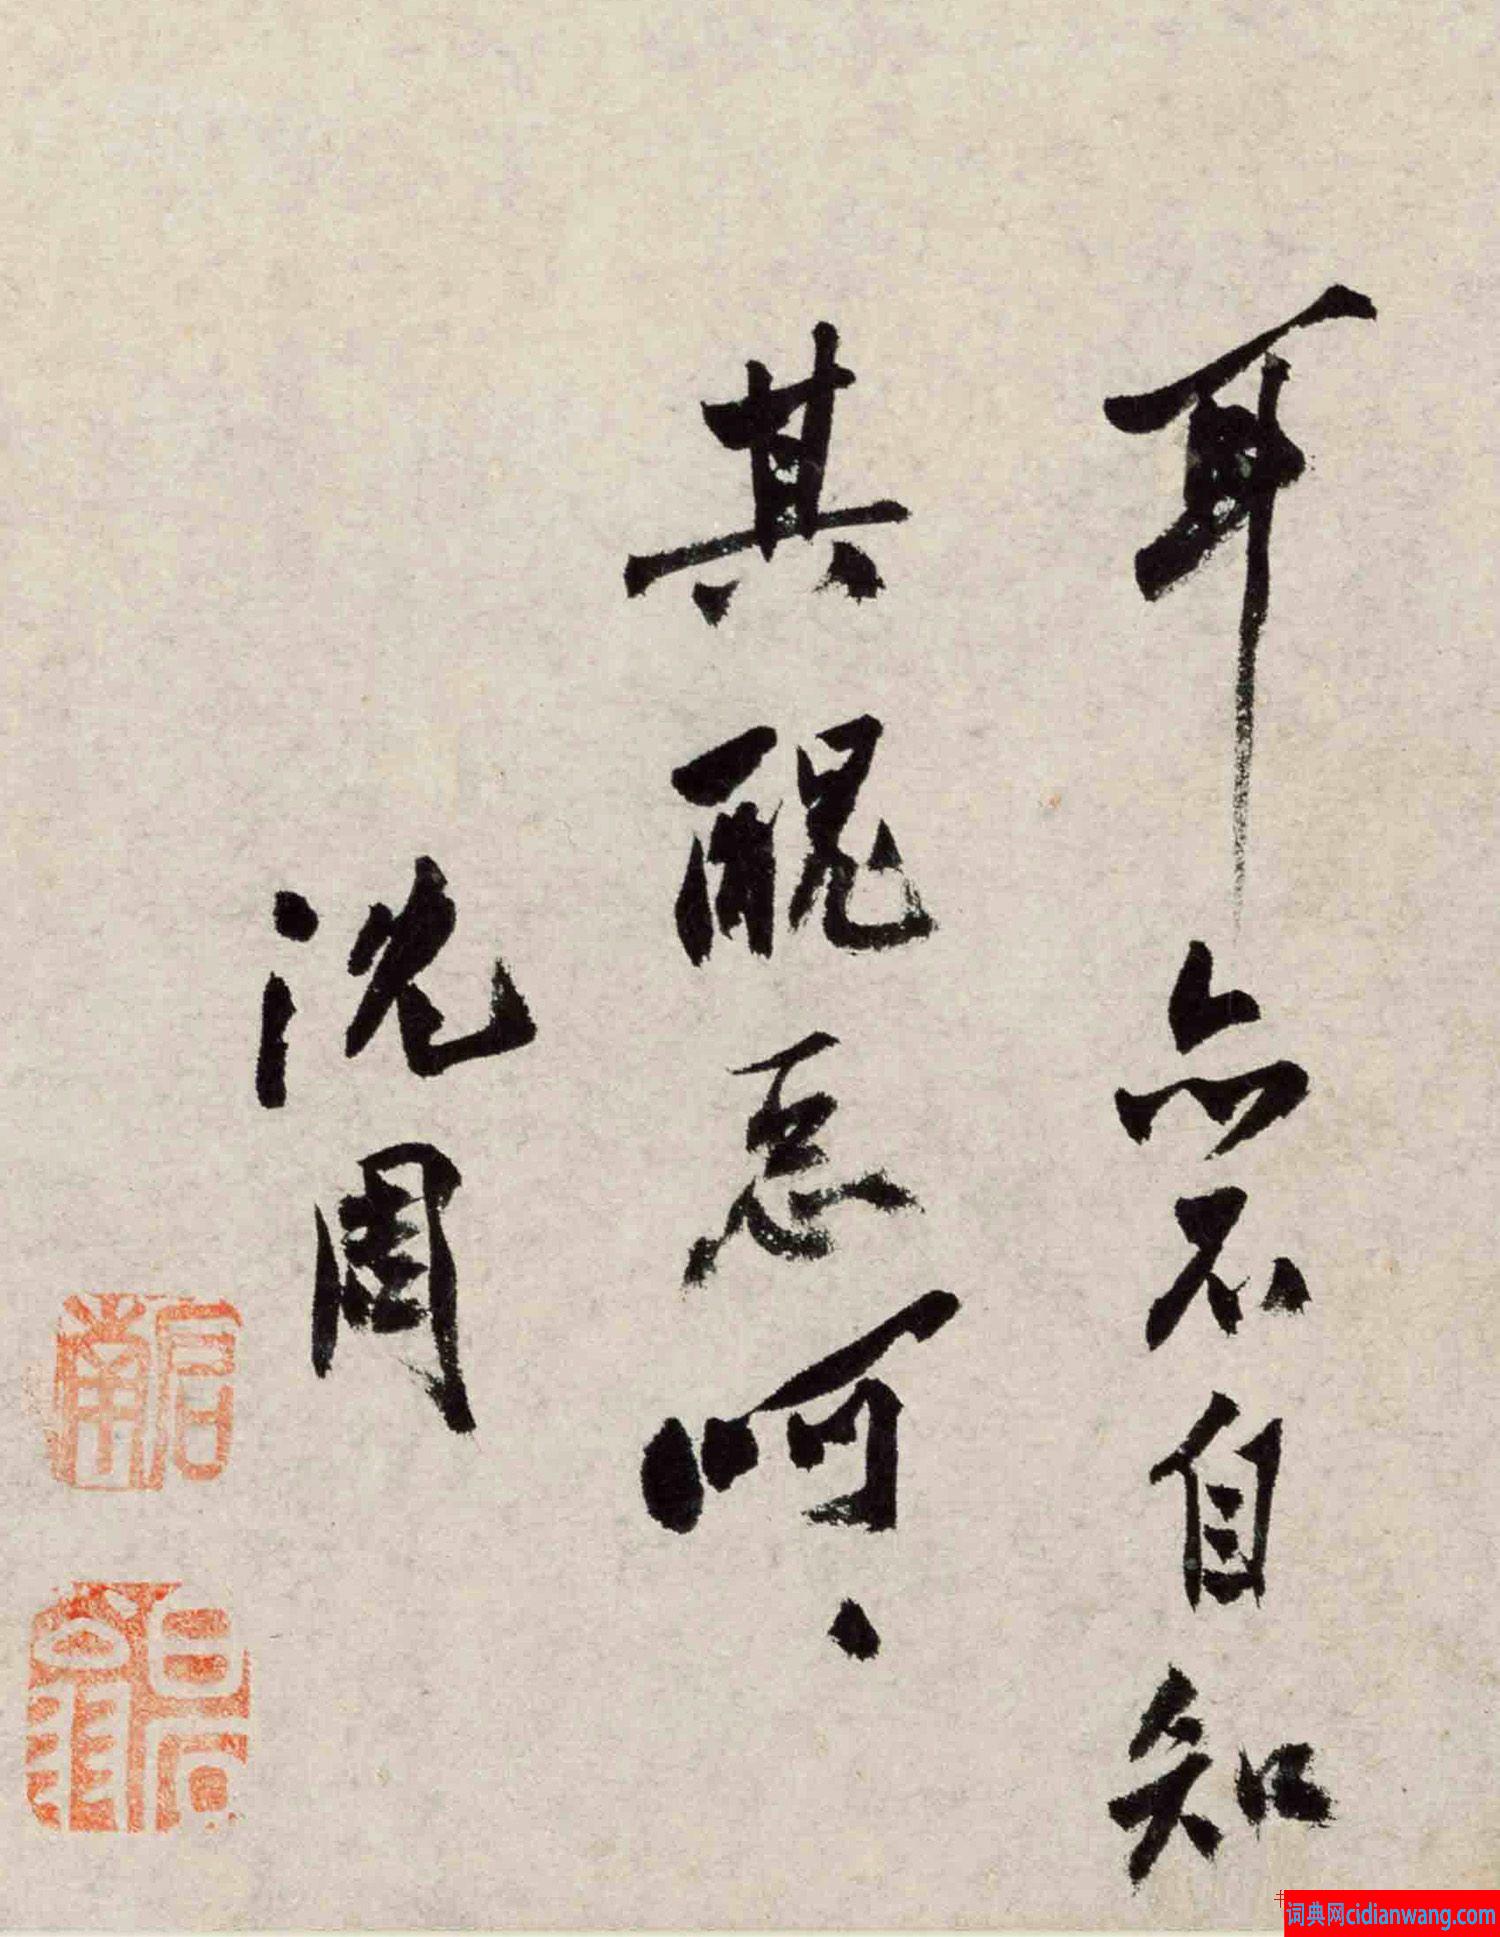 耳亦不自知
其醜惡呵、
沈周
启南
白石翁
词典网cidianwang.com